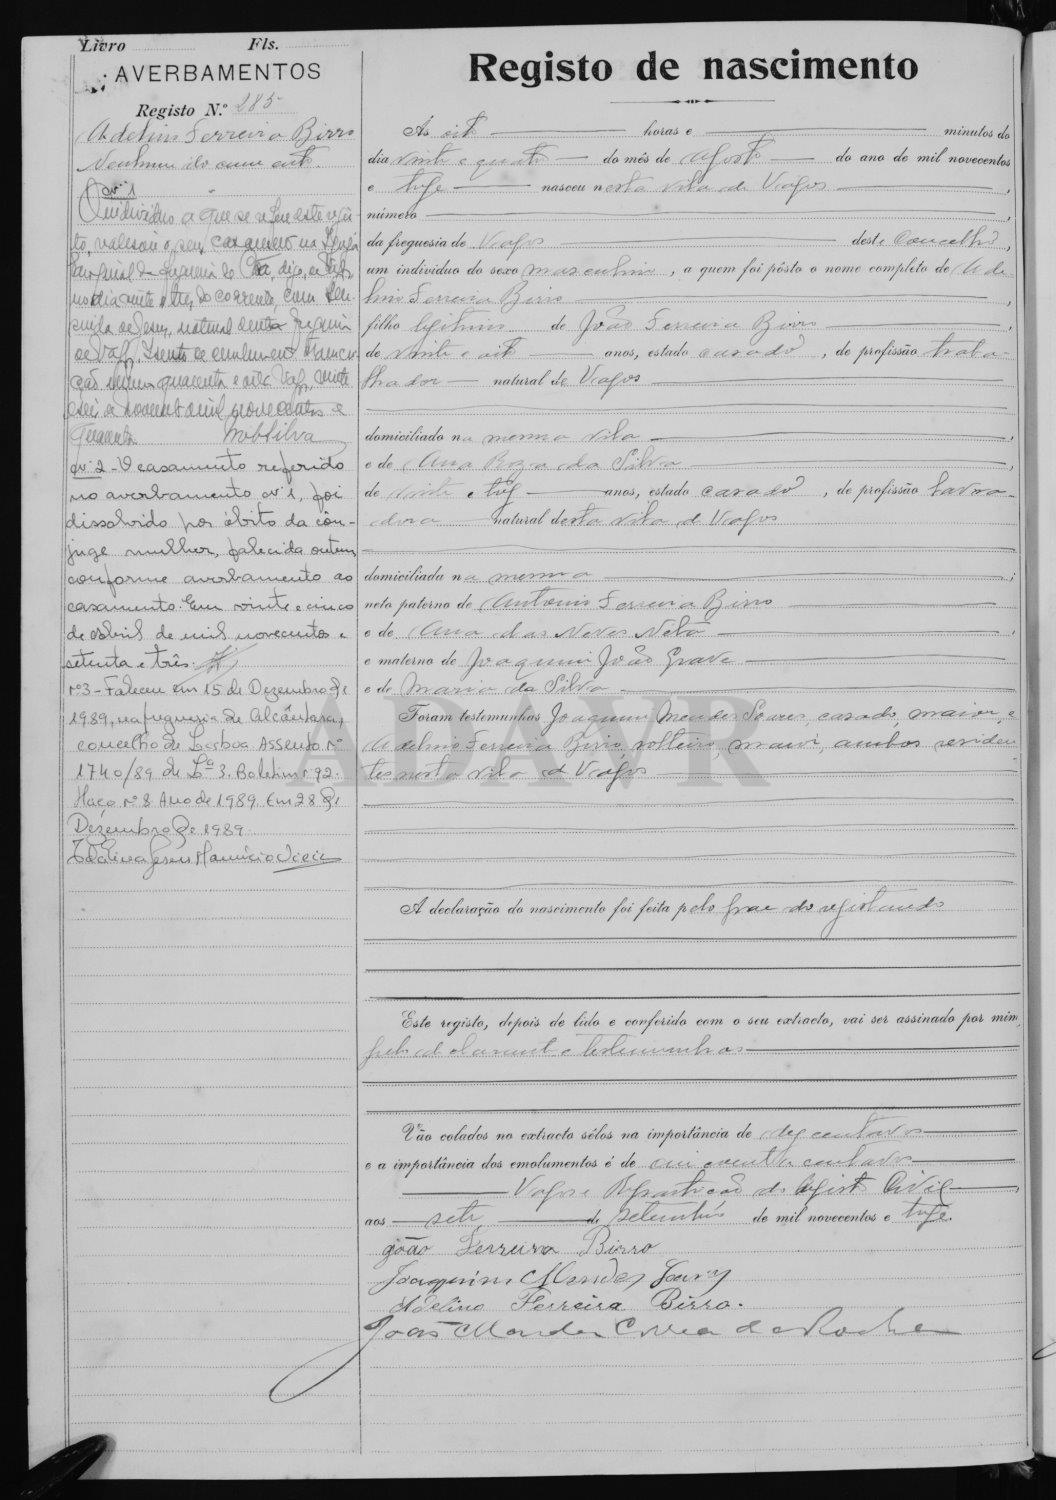 Livro Fls.
AVERBAMENTOS
Registo N.º 285
Adelino Ferreira Birro
Nº 1
O individuo a que se refere este regis-
to, realisou o seu casamento na Igreja
Paroquial da freguesia de digo, de
no dia vinte e tres do corrente, com
de Jesus, natural desta freguesia
de
quarenta e oito. Vagos, vinte
e seis de mil novecentos e
quarenta Silva
Nº 2 - O casamento referido
no averbamento nº 1, foi
dissolvido por óbito da côn-
juge mulher, falecida ontem
conforme averbamento ao
casamento. Em vinte e cinco
de Abril de mil novecentos e
setenta e três.
nº 3 - Faleceu em 15 de Dezembro de
1989, na freguesia de Alcântara,
concelho de Lisboa. Assento nº
1740/89 de Lª 3. Boletim nº 92.
Maço nº 8 Ano de 1989. Em 28 de
Dezembro de 1989.
Registo de nascimento
Às oito horas e minutos do
dia vinte e quatro do mês de Agosto do ano de mil novecentos
e treze nasceu nesta vila de Vagos,
número
da freguesia de Vagos deste Concelho,
um individuo do sexo masculino, a quem foi pôsto o nome completo de Ade-
lino Ferreira Birro,
filho legitimo de João Ferreira Birro
de vinte e oito anos, estado casado, de profissão traba-
lhador natural de Vagos
domiciliado na mesma vila,
e de Ana Roza da Silva,
de vinte e tres anos, estado casada, de profissão lavra-
dora natural desta vila de Vagos
domiciliada na mesma;
neto paterno de Antonio Ferreira Birro
e de Ana das Neves Neta,
e materno de Joaquim João Grave
e de Maria da Silva
Foram testemunhas Joaquim Mendes Soares, casado, maior, e
Adelino Ferreira Birro, solteiro, maior, ambos residen-
tes nesta vila de Vagos
ADAVR
A declaração do nascimento foi feita pelo pae do registando
Este registo, depois de lido e conferido com o seu extracto, vai ser assinado por mim,
pelo declarante e testemunhas
Vão colados no extracto sêlos na importância de dez centavos
e a importância dos emolumentos é de centavos
Vagos e Repartição do Registo Civil,
aos sete de Setembro de mil novecentos e treze.
João Ferreira Birro
Joaquim Mendes Soares
Adelino Ferreira Birro.
João Mendes Correa da Rocha